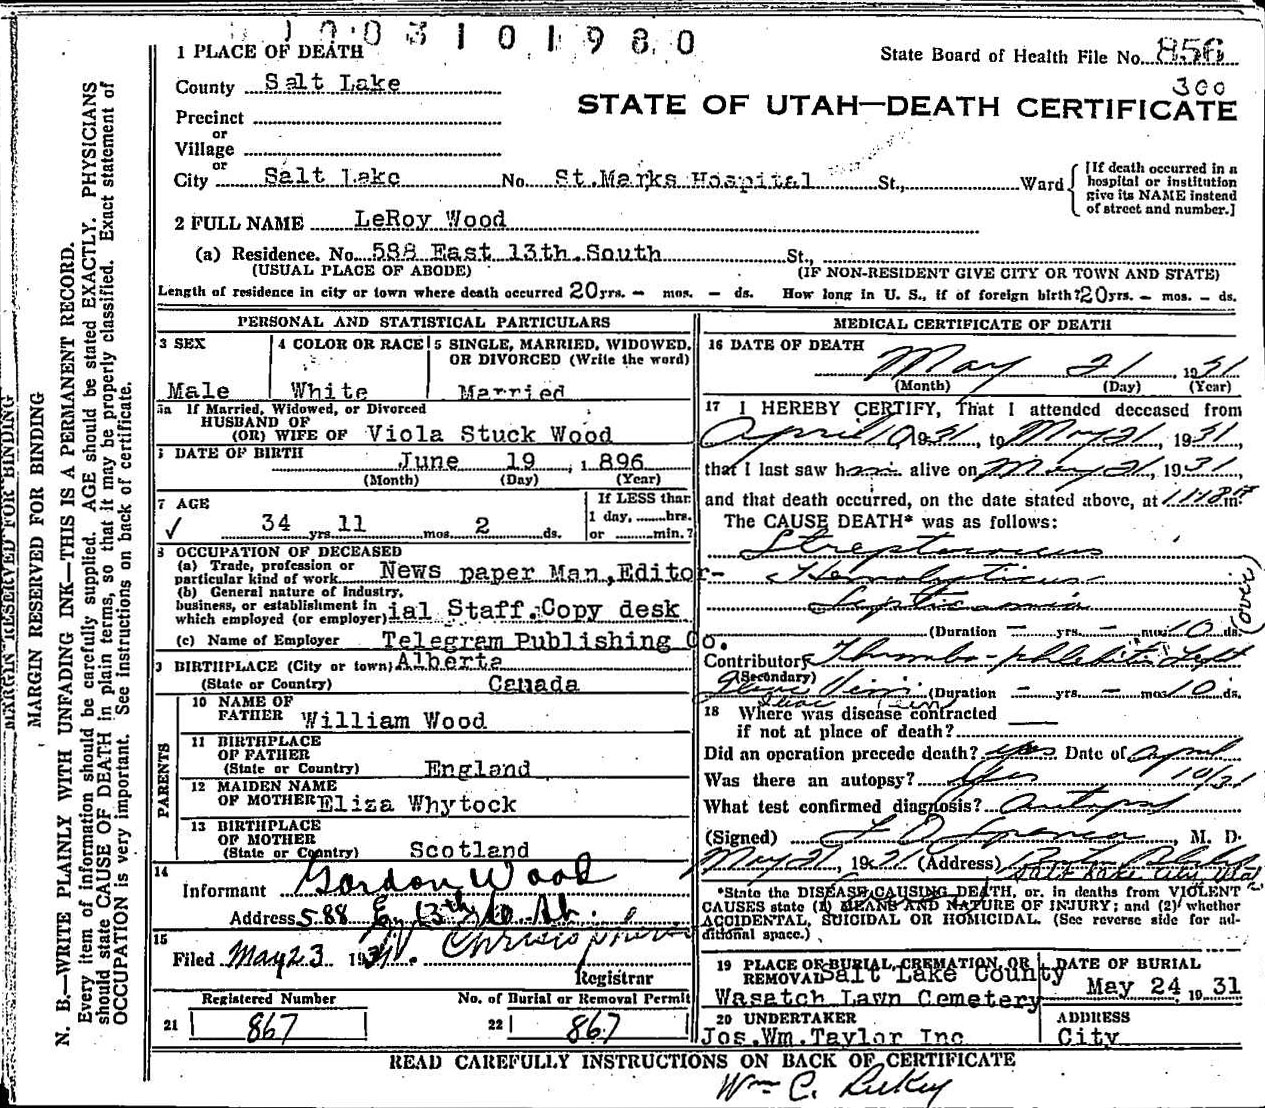 1003101980
1 PLACE OF DEATH
State Board of Health File No. 856
300
County Salt Lake
STATE OF UTAH—DEATH CERTIFICATE
Precinct
or
Village
or
City Salt Lake No. St.Marks Hospital St., Ward
[If death occurred in a hospital or institution give its NAME instead of street and number.]
2 FULL NAME LeRoy Wood
(a) Residence. No. 588 East 13th.South St.,
(USUAL PLACE OF ABODE) (IF NON-RESIDENT GIVE CITY OR TOWN AND STATE)
Length of residence in city or town where death occurred 20 yrs. – mos. – ds. How long in U. S., if of foreign birth? 20 yrs. – mos. – ds.
PERSONAL AND STATISTICAL PARTICULARS
3 SEX
Male
4 COLOR OR RACE
White
5 SINGLE, MARRIED, WIDOWED, OR DIVORCED (Write the word)
Married
5a If Married, Widowed, or Divorced
HUSBAND OF
(OR) WIFE OF Viola Stuck Wood
DATE OF BIRTH June 19, 1896
(Month) (Day) (Year)
7 AGE
✓ 34 yrs. 11 mos. 2 ds.
If LESS than
1 day, hrs.
or min.?
8 OCCUPATION OF DECEASED
(a) Trade, profession or
particular kind of work News paper Man,Editor-
(b) General nature of Industry,
business, or establishment in
which employed (or employer) ial Staff.Copy desk
(c) Name of Employer Telegram Publishing Co.
9 BIRTHPLACE (City or town) Alberta
(State or Country) Canada
PARENTS
10 NAME OF
FATHER William Wood
11 BIRTHPLACE
OF FATHER
(State or Country) England
12 MAIDEN NAME
OF MOTHER Eliza Whytock
13 BIRTHPLACE
OF MOTHER
(State or Country) Scotland
14
Informant Gordon Wood
Address 588 E. 13th So. St.
15
Filed May 23 1931.
Registrar
Registered Number
21 867
No. of Burial or Removal Permit
22 867
MEDICAL CERTIFICATE OF DEATH
16 DATE OF DEATH
May 21, 1931
(Month) (Day) (Year)
17 I HEREBY CERTIFY, That I attended deceased from
April 10, 1931, to May 21, 1931,
that I last saw him alive on May 21, 1931,
and that death occurred, on the date stated above, at m.
The CAUSE DEATH* was as follows:
Streptococcus
Hemolyticus
Septicemia
(over)
(Duration – yrs. – mos. 10 ds.
Contributory Thrombo-phlebitis Left
(Secondary)
(Duration – yrs. – mos. 10 ds.
18 Where was disease contracted
if not at place of death?
Did an operation precede death? yes Date of April
Was there an autopsy? Yes 10/31
What test confirmed diagnosis? Autopsy
(Signed) M. D.
May 21, 1931 (Address) Boston Bldg
Salt Lake City, Utah
*State the DISEASE CAUSING DEATH, or, in deaths from VIOLENT
CAUSES state (1) MEANS AND NATURE OF INJURY; and (2) whether
ACCIDENTAL, SUICIDAL OR HOMICIDAL. (See reverse side for ad-
ditional space.)
19 PLACE OF BURIAL, CREMATION, OR
REMOVAL Salt Lake County
Wasatch Lawn Cemetery
DATE OF BURIAL
May 24 1931
20 UNDERTAKER
Jos.Wm.Taylor Inc
ADDRESS
City
READ CAREFULLY INSTRUCTIONS ON BACK OF CERTIFICATE
Wm C.
MARGIN RESERVED FOR BINDING
MARGIN RESERVED FOR BINDING
N. B.—WRITE PLAINLY WITH UNFADING INK—THIS IS A PERMANENT RECORD.
Every item of information should be carefully supplied. AGE should be stated EXACTLY. PHYSICIANS
should state CAUSE OF DEATH in plain terms, so that it may be properly classified. Exact statement of
OCCUPATION is very important. See instructions on back of certificate.